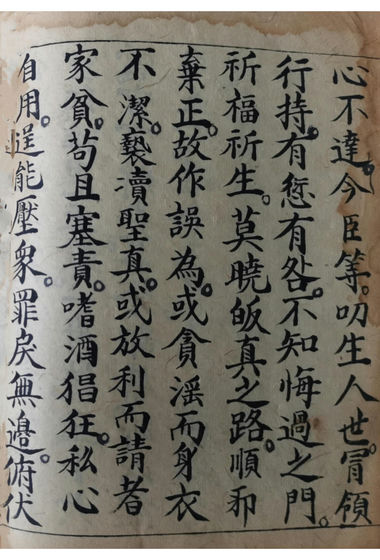 心不達。今臣等。叨生人世。冒領
行持。有愆有咎。不知悔過之門。
祈福祈生。莫曉皈真之路。順邪
棄正。故作誤為。或貪淫而身衣
不潔。褻瀆聖真。或放利而請者
家貧。苟且塞責。嗜酒猖狂。私心
自用。逞能壓衆。罪戾無邊。俯伏